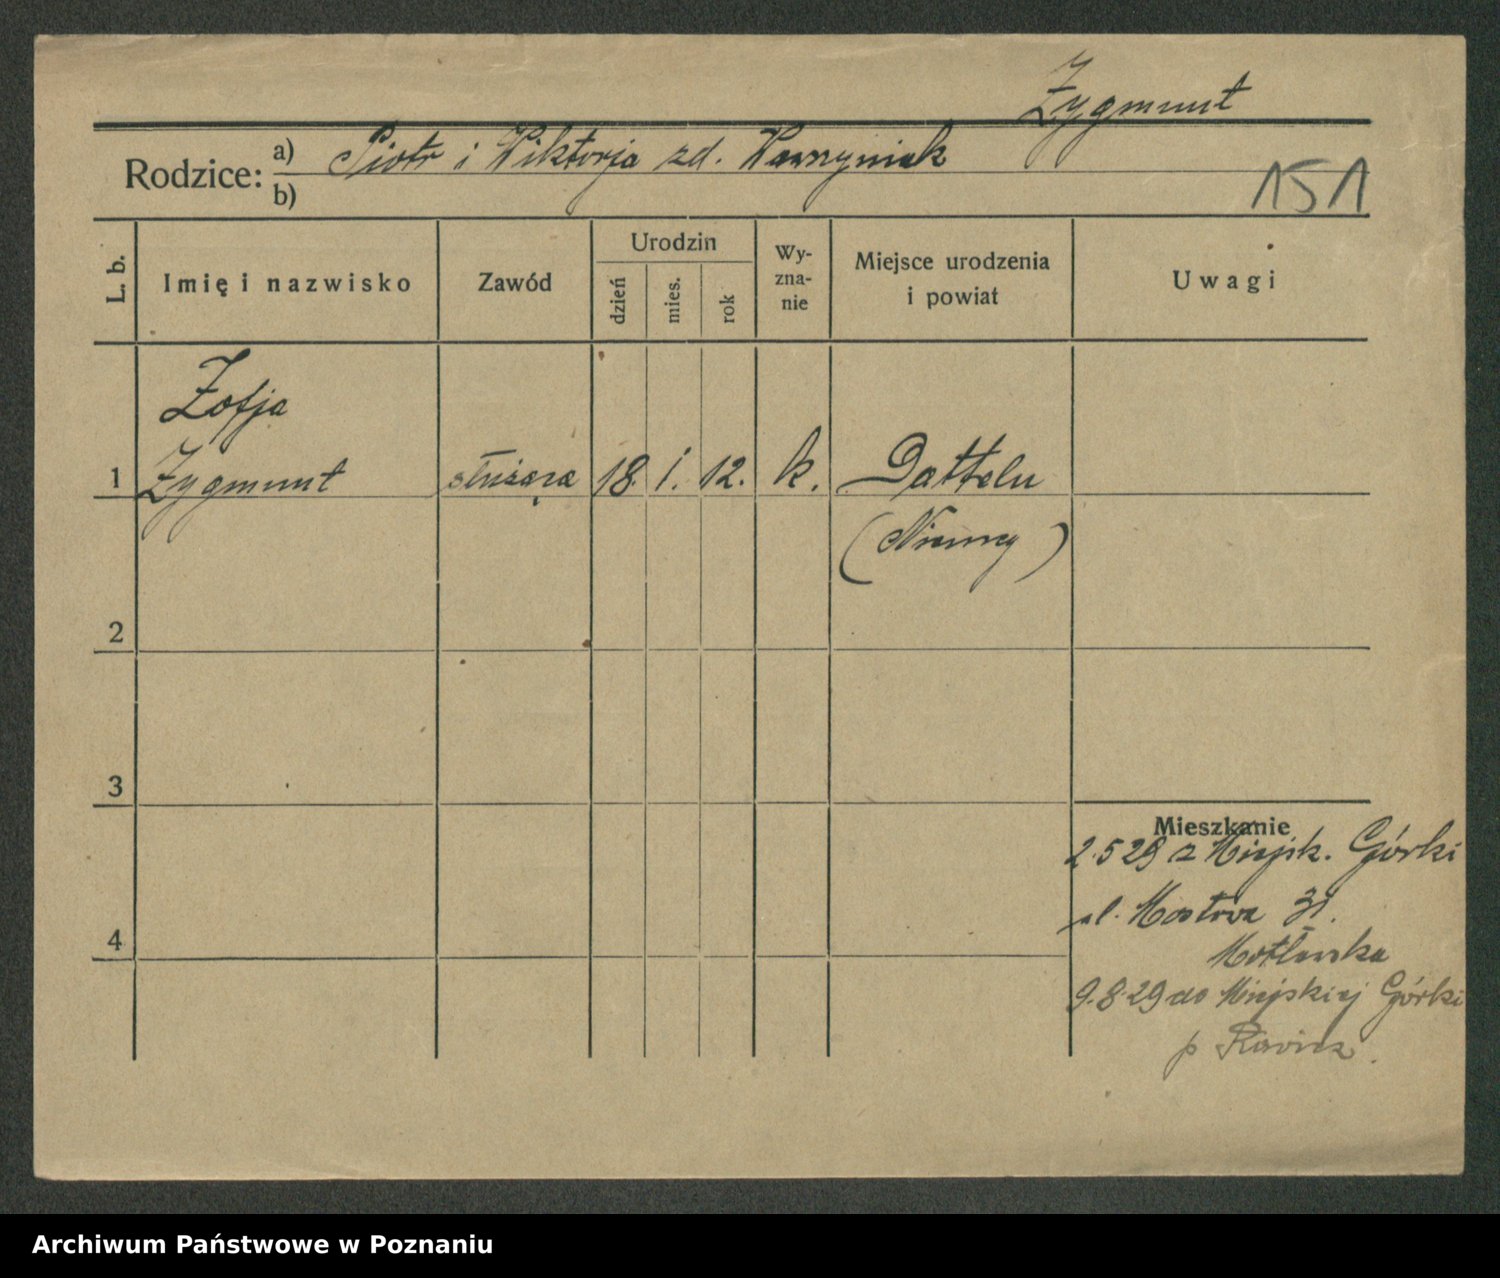 Zygmunt
Rodzice: a) Piotr i Wiktorja zd. Wawrzyniak
b)
151
L. b.
Imię i nazwisko
Zawód
Urodzin
dzień
mies.
rok
Wy-
zna-
nie
Miejsce urodzenia
i powiat
Uwagi
Zofja
1 Zygmunt służąca 18. 1. 12. k. Datteln
(Niemcy)
2
3
Mieszkanie
2.5 29 z Miejsk. Górki
ul. Mostowa 31.
4
9.8.29 do Miejskiej Górki
p Rawicz.
Archiwum Państwowe w Poznaniu